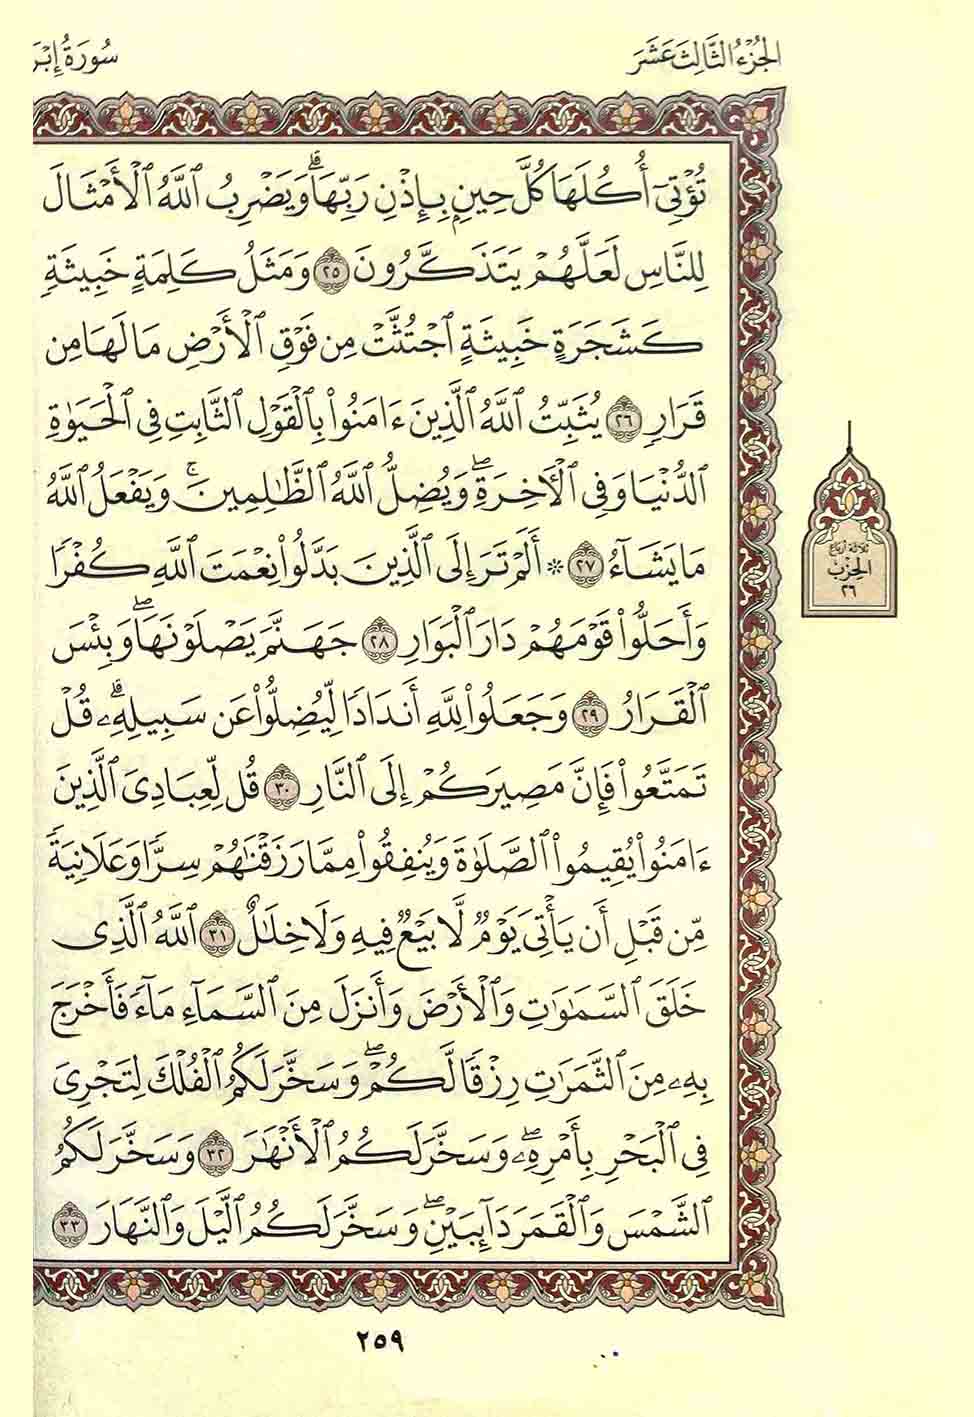 الجُزْءُ الثَّالِثَ عَشَرَ
سُورَةُ إِبْرَ
تُؤْتِىٓ أُكُلَهَا كُلَّ حِينِۭ بِإِذْنِ رَبِّهَاۗ وَيَضْرِبُ ٱللَّهُ ٱلْأَمْثَالَ
لِلنَّاسِ لَعَلَّهُمْ يَتَذَكَّرُونَ ٢٥ وَمَثَلُ كَلِمَةٍ خَبِيثَةٖ
كَشَجَرَةٍ خَبِيثَةٍ ٱجْتُثَّتْ مِن فَوْقِ ٱلْأَرْضِ مَا لَهَا مِن
قَرَارٖ ٢٦ يُثَبِّتُ ٱللَّهُ ٱلَّذِينَ ءَامَنُوا۟ بِٱلْقَوْلِ ٱلثَّابِتِ فِى ٱلْحَيَوٰةِ
ٱلدُّنْيَا وَفِى ٱلْـَٔاخِرَةِۖ وَيُضِلُّ ٱللَّهُ ٱلظَّٰلِمِينَۚ وَيَفْعَلُ ٱللَّهُ
مَا يَشَآءُ ٢٧ ۞ أَلَمْ تَرَ إِلَى ٱلَّذِينَ بَدَّلُوا۟ نِعْمَتَ ٱللَّهِ كُفْرٗا
وَأَحَلُّوا۟ قَوْمَهُمْ دَارَ ٱلْبَوَارِ ٢٨ جَهَنَّمَ يَصْلَوْنَهَاۖ وَبِئْسَ
ٱلْقَرَارُ ٢٩ وَجَعَلُوا۟ لِلَّهِ أَندَادٗا لِّيُضِلُّوا۟ عَن سَبِيلِهِۦۗ قُلْ
تَمَتَّعُوا۟ فَإِنَّ مَصِيرَكُمْ إِلَى ٱلنَّارِ ٣٠ قُل لِّعِبَادِىَ ٱلَّذِينَ
ءَامَنُوا۟ يُقِيمُوا۟ ٱلصَّلَوٰةَ وَيُنفِقُوا۟ مِمَّا رَزَقْنَٰهُمْ سِرّٗا وَعَلَانِيَةٗ
مِّن قَبْلِ أَن يَأْتِىَ يَوْمٞ لَّا بَيْعٞ فِيهِ وَلَا خِلَٰلٌ ٣١ ٱللَّهُ ٱلَّذِى
خَلَقَ ٱلسَّمَٰوَٰتِ وَٱلْأَرْضَ وَأَنزَلَ مِنَ ٱلسَّمَآءِ مَآءٗ فَأَخْرَجَ
بِهِۦ مِنَ ٱلثَّمَرَٰتِ رِزْقٗا لَّكُمْۖ وَسَخَّرَ لَكُمُ ٱلْفُلْكَ لِتَجْرِىَ
فِى ٱلْبَحْرِ بِأَمْرِهِۦۖ وَسَخَّرَ لَكُمُ ٱلْأَنْهَٰرَ ٣٢ وَسَخَّرَ لَكُمُ
ٱلشَّمْسَ وَٱلْقَمَرَ دَآئِبَيْنِۖ وَسَخَّرَ لَكُمُ ٱلَّيْلَ وَٱلنَّهَارَ ٣٣
ثلاثة أرباع
الحِزْب
٢٦
٢٥٩